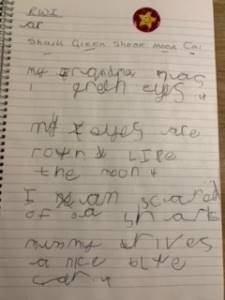 RWI
ar
Shark Green Shook moon Car
my grandma has
green eyes
my eyes are
round LIKE
the moon
I am scared
of a shark
mummy drives
a nice blue
car